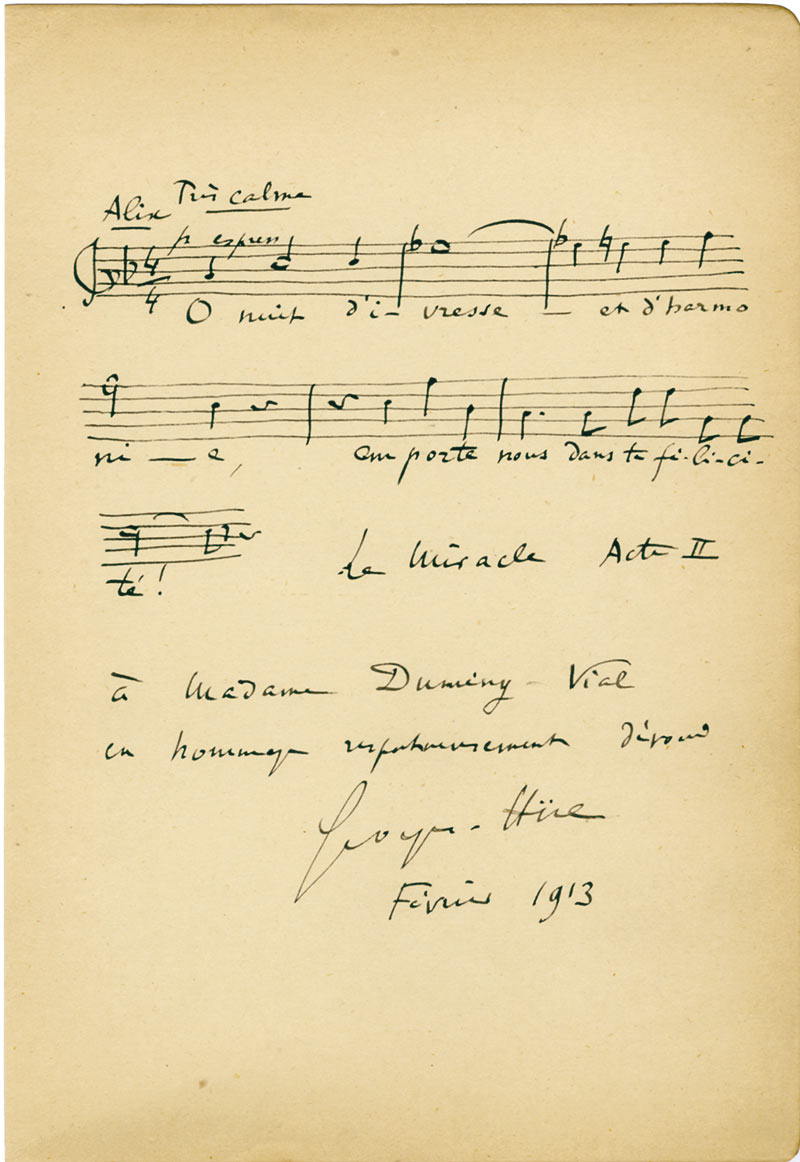 Alix Très calme
p espress
4
4
O nuit d'i-vresse — et d'harmo
ni — e, emporte nous dans ta fé-li-ci-
té!
Le Miracle Acte II
à Madame Dumény-Vial
en hommage respectueusement dévoué
Georges-Hüe
Février 1913